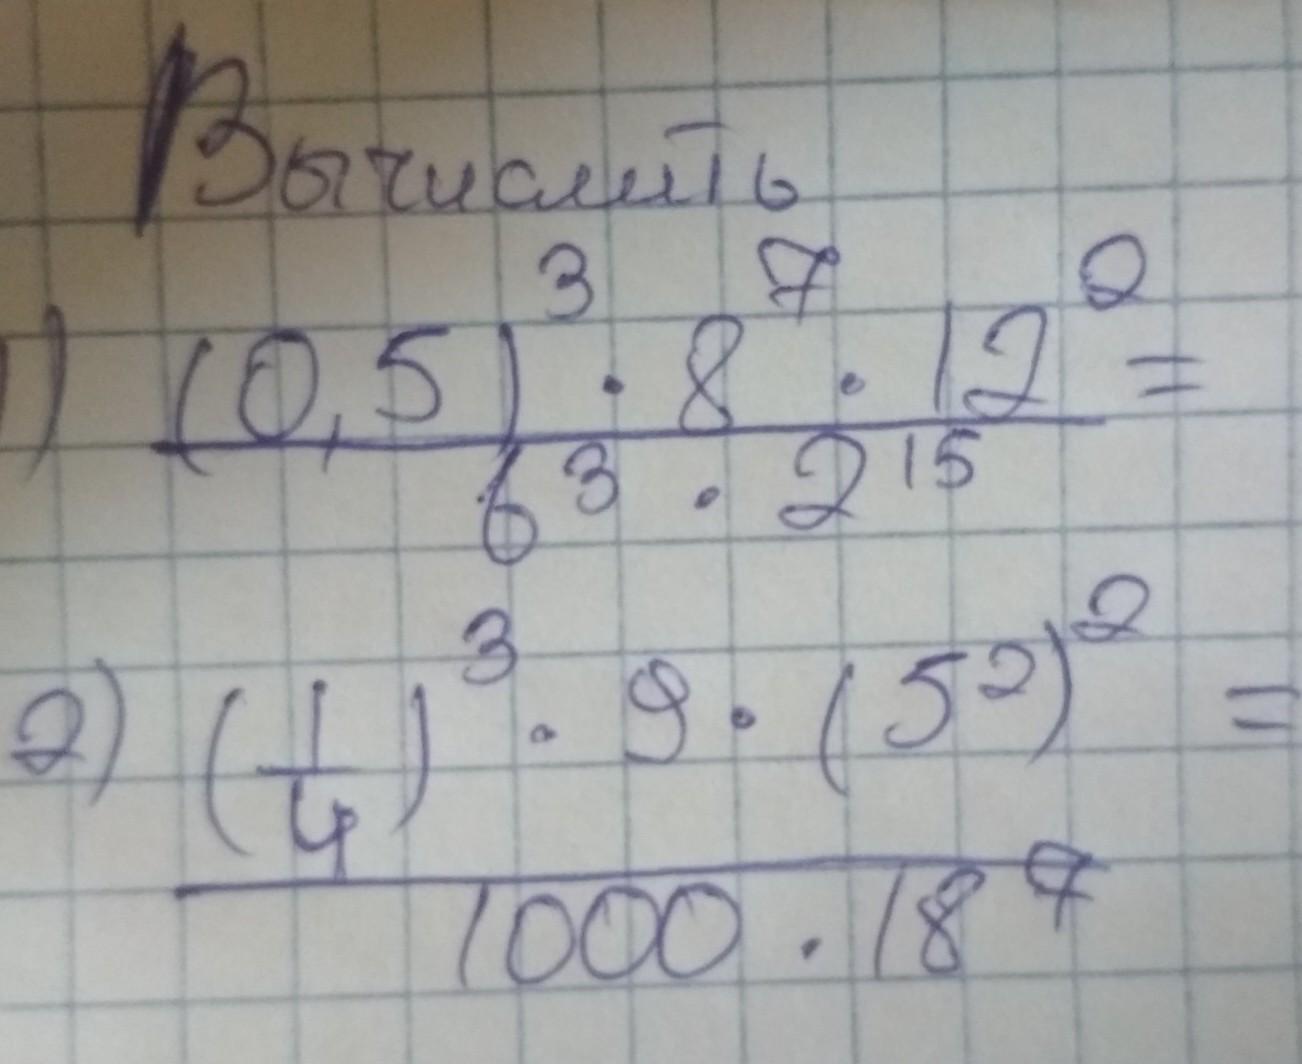 Вычислить
1) (0,5)³ · 8⁷ · 12² =
6³ · 2¹⁵
2) (1/4)³ · 9 · (5²)² =
1000 · 18⁷